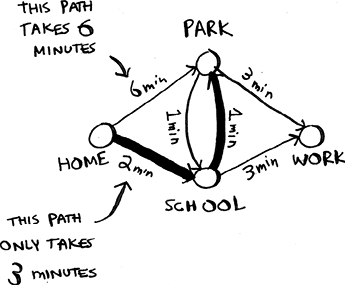 THIS PATH
TAKES 6
MINUTES
PARK
6 min
3 min
1 min
1 min
HOME
2 min
3 min
WORK
SCHOOL
THIS PATH
ONLY TAKES
3 MINUTES